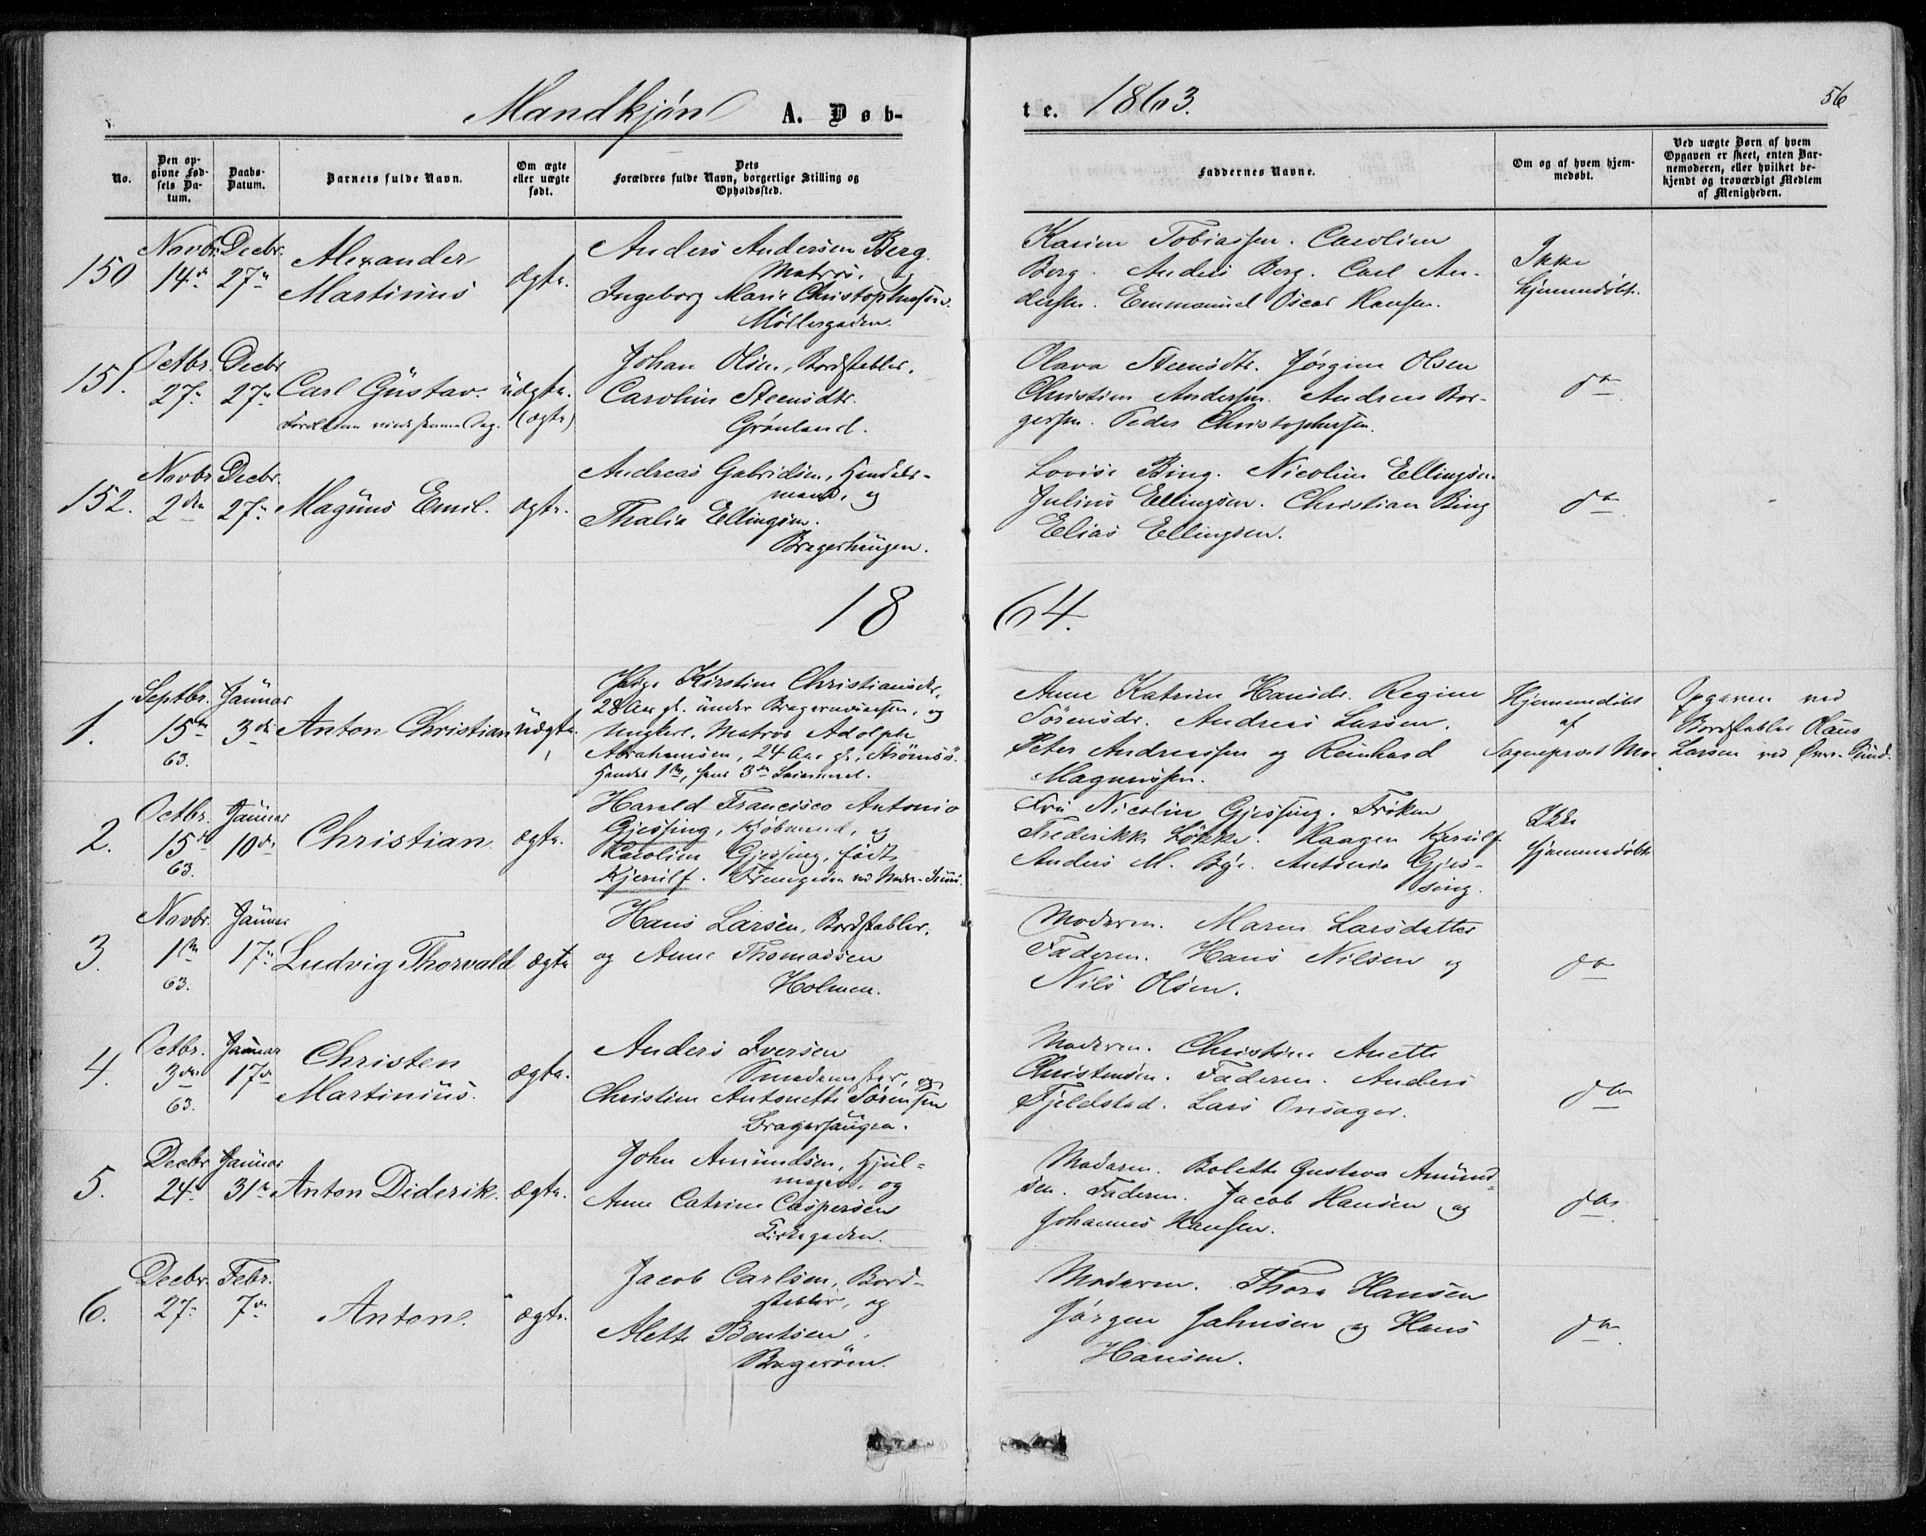 Mandkjøn A. Døb-
te. 1863.
56
No.
Den op-
givne Fød-
sels Da-
tum.
Daabs-
Datum.
Barnets fulde Navn.
Om ægte
eller uægte
født.
Dets
Forældres fulde Navn, borgerlige Stilling og
Opholdssted.
Faddernes Navne.
Om og af hvem hjem-
medøbt.
Ved uægte Børn af hvem
Opgaven er skeet, enten Bar-
nemoderen, eller hvilket be-
kjendt og troværdigt Medlem
af Menigheden.
150
Novbr.
14de
Decbr.
27de
Alexander
Martinius
ægte.
Anders Andersen Berg.
Matros, og
Ingeborg Marie Christophersen.
Møllergaden.
Karine Tobiassen. Caroline
Berg. Anders Berg. Carl An-
dersen. Emmanuel Oscar Hansen.
Ikke
hjemmedøbt.
151.
Octbr.
27de
Decbr.
27de
Carl Gustav.
uægte.
(ægte)
Johan Olsen, Bordstabler,
Caroline Steensdtr.
Grønland.
Olava Steensdtr. Jørgine Olsen
Christian Andersen. Andreas Bor-
gersen. Peder Christophersen.
do
152.
Novbr.
2den
Decbr.
27de
Magnus Emil.
ægte.
Andreas Gabrielsen, Handels-
mand, og
Thalia Ellingsen.
Bragerhaugen.
Lovise Bing. Nicoline Ellingsen.
Julius Ellingsen. Christian Bing
Elias Ellingsen.
do
18 64.
1.
Septbr.
15de
63.
Januar
3die
Anton Christian
uægte.
Pige Kirstine Christiansdtr,
28 Aar gl. under Bragernæsaasen, og
Ungkarl, Matros Adolph
Abrahamsen, 24 Aar gl., Strømsø.
Hendes 1ste, hans 3die Leiermaal.
Anne Katrine Hansdr. Regine
Sørensdr. Andreas Larsen.
Peter Andreassen og Reinhard
Magnussen.
Hjemmedøbt
af
Sognepræst Moe
Opgaven ved
Bordstabler Olaus
Larsen ved Øvre-Sund.
2.
Octbr.
15de
63.
Januar
10de
Christian
ægte.
Harald Francisco Antonio
Gjessing, Kjøbmand, og
Caroline Gjessing, født
Kjerulf.
Fru Nicoline Gjessing. Frøken
Frederikke Løkke. Haagen Kjerulf
Anders M. Antonio Gjes-
sing.
Ikke
hjemmedøbt
3.
Novbr.
1ste
63.
Januar
17de
Ludvig Thorvald
ægte
Hans Larsen, Bordstabler,
og Anne Thomassen
Holmen.
Moderen. Maren Larsdatter
Faderen. Hans Nilsen og
Nils Olsen.
do
4.
Octbr.
3die
63.
Januar
17de
Christen
Martinius.
ægte.
Anders Iversen
Smedemester, og
Christine Antonette Sørensen
Bragerhaugen.
Moderen. Christine Anette
Christensen. Faderen. Anders
Fjeldstad. Lars Onsager.
do
5.
Decbr.
24de
Januar
31te
Anton Diderik.
ægte.
John Amundsen, Hjul-
mager, og
Anne Catrine Caspersen
Kirkegaden.
Moderen. Bolette Gustava Amund-
sen. Faderen. Jacob Hansen og
Johannes Hansen.
do
6.
Decbr.
27de
Febr.
7de
Anton.
ægte.
Jacob Carlsen, Bord-
stabler, og
Alette Bentsen.
Bragerøen.
Moderen. Thora Hansen
Jørgen Jahnsen og Hans
Hansen.
do